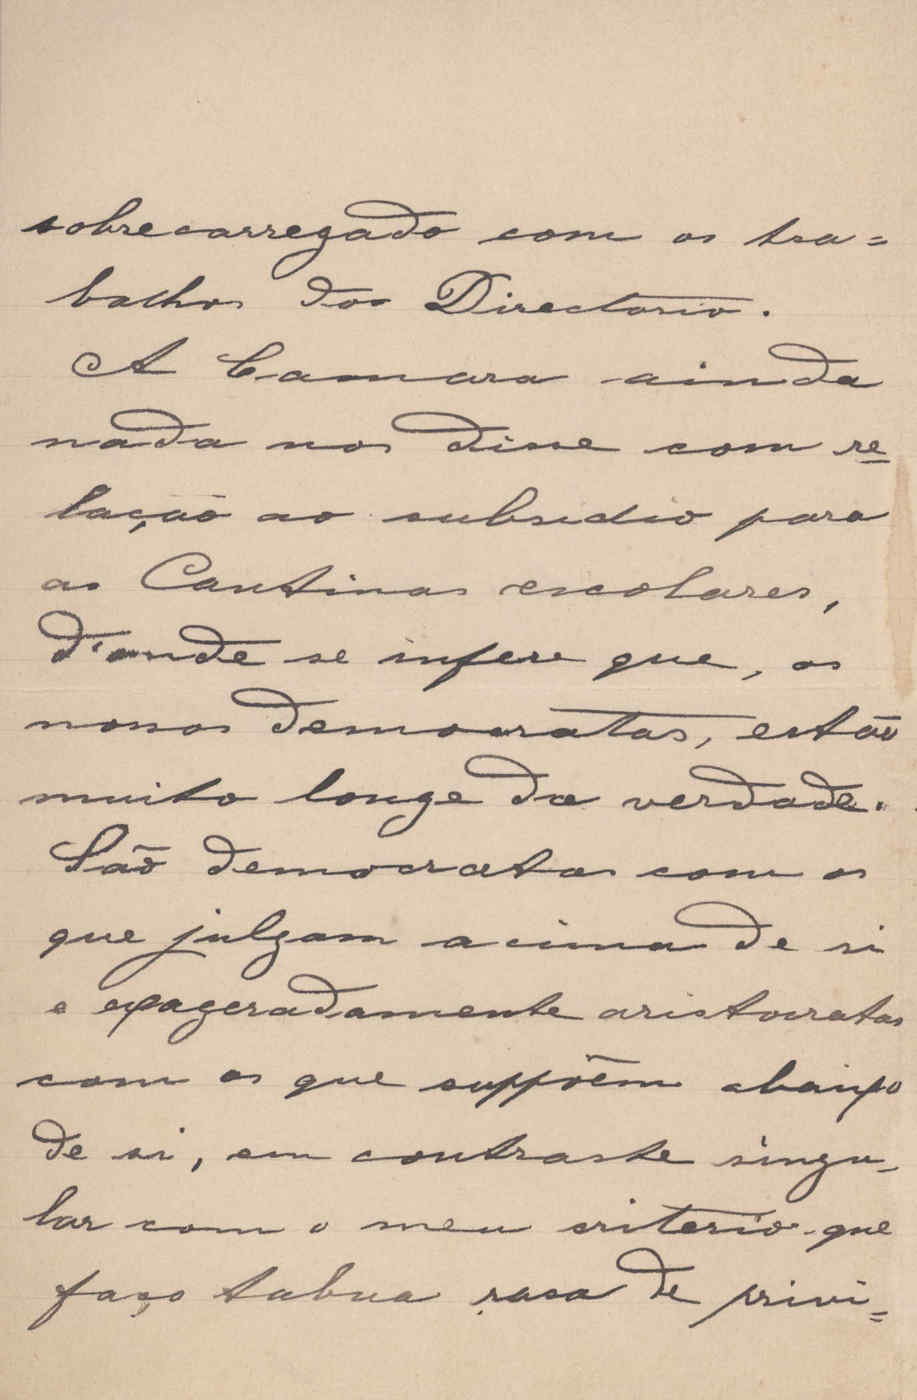 sobrecarregado com os tra=
balhos do Directorio.
A Camara ainda
nada nos disse com re=
lação ao subsidio para
as Cantinas escolares,
d'onde se infere que, os
nossos democratas, estão
muito longe da verdade.
São democratas com os
que julgam acima de si
e exageradamente aristocratas
com os que suppõem abaixo
de si, em contraste singu-
lar com o meu criterio que
faço tabua rasa de privi=